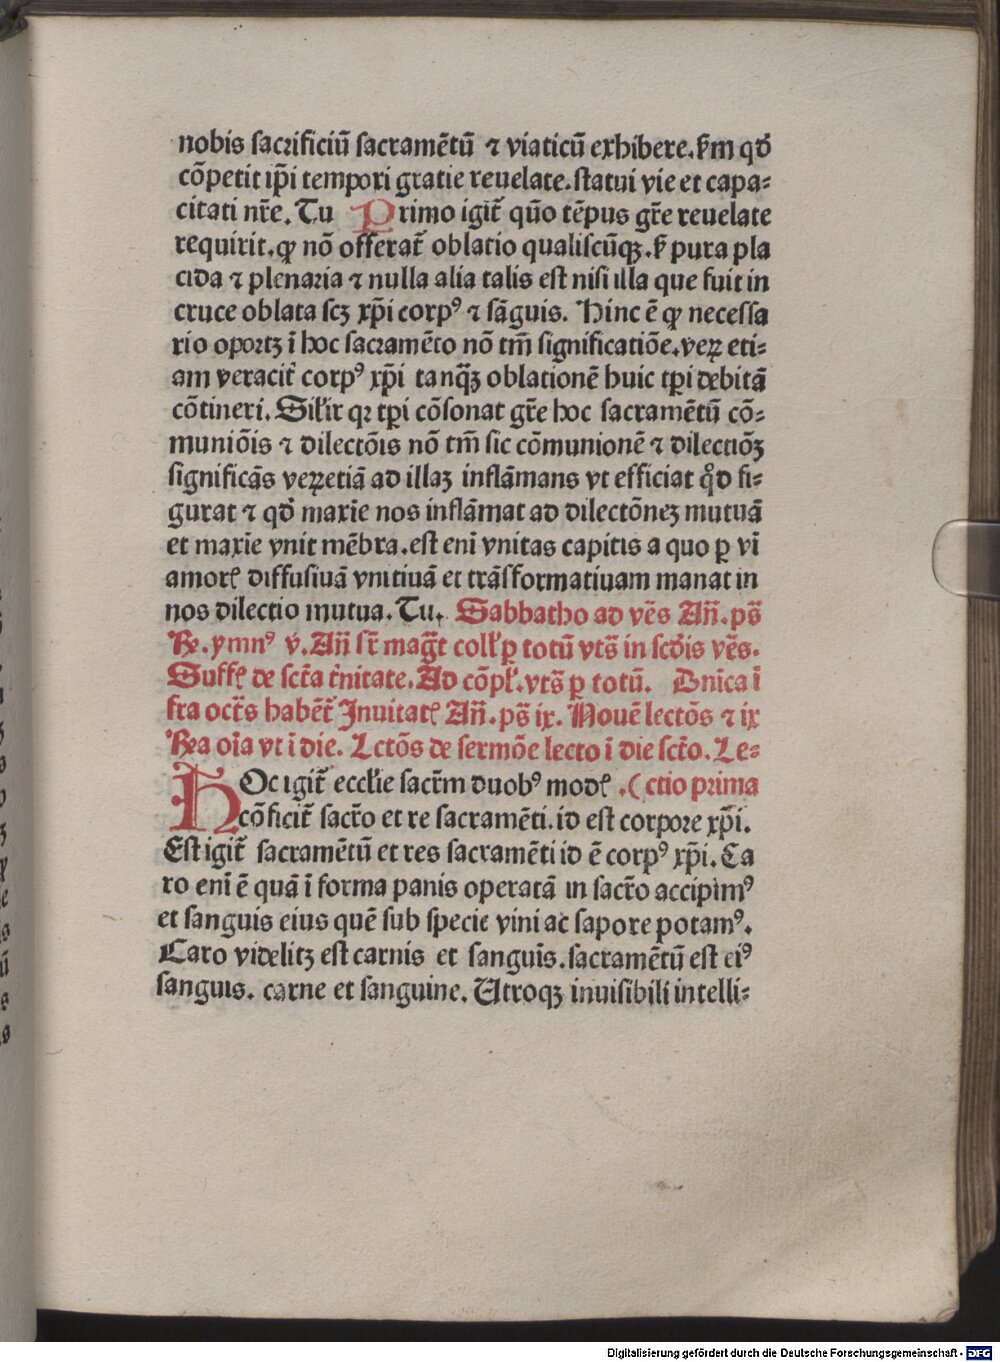 nobis sacrificiū sacramētū ⁊ viaticū exhibere. ẜm qđ
cōpetit ip̄i tempori gratie reuelate. statui vie et capa⸗
citati nr̄e. Tu Primo igit̄ qn̄o tēpus gr̄e reuelate
requirit. ꝙ nō offerat̄ oblatio qualiscūqꝫ. ẜ pura pla
cida ⁊ plenaria ⁊ nulla alia talis est nisi illa que fuit in
cruce oblata scꝫ xp̄i corpꝰ ⁊ sāguis. Hinc ē ꝙ necessa
rio oportꝫ ī hoc sacramēto nō tm̄ significatiōe. veꝝ eti⸗
am veracit̄ corpꝰ xp̄i tanq̄ꝫ oblationē huic tp̄i debitā
cōtineri. Silˀr qꝛ tp̄i cōsonat gr̄e hoc sacramētū cō⸗
muniōis ⁊ dilectōis nō tm̄ sic cōmunionē ⁊ dilectiōꝫ
significās veꝝetiā ad illaꝫ inflāmans vt efficiat qͦd fi⸗
gurat ⁊ qđ maxīe nos inflāmat ad dilectōneꝫ mutuā
et maxīe vnit mēbra. est eni vnitas capitis a quo ꝑ vī
amorꝭ diffusiuā vnitiuā et trāsformatiuam manat in
nos dilectio mutua. Tu. Sabbatho ad vēs Añ. ps̄
℞. ymnꝰ v̄. Añ sr̄ maḡt coll̄ ꝑ totū vts̄ in scd̄is vēs.
Suffꝭ de scta t̄nitate. Ad cōpl̄. vts̄ ꝑ totū. Dn̄ica ī
fra oct̄s habēt̄ Inuitatꝭ Añ. ps̄ ix. Nouē lectōs ⁊ ix
℞a oīa vt ī die. Lctōs de sermōe lecto ī die scto. Le⸗
HOc igit̄ eccl̄ie sacr̄m duobꝰ modꝭ .( ctio prima
cōficit̄ sacr̄o et re sacramēti. id est corpore xp̄i.
Est igit̄ sacramētū et res sacramēti id ē corpꝰ xp̄i. Ca
ro eni ē quā ī forma panis operatā in sacr̄o accipimꝰ
et sanguis eius quē sub specie vini ac sapore potamꝰ.
Caro videlitꝫ est carnis et sanguis. sacramētū est eiꝰ
sanguis. carne et sanguine. Utroqꝫ inuisibili intelli⸗
Digitalisierung gefördert durch die Deutsche Forschungsgemeinschaft - DFG